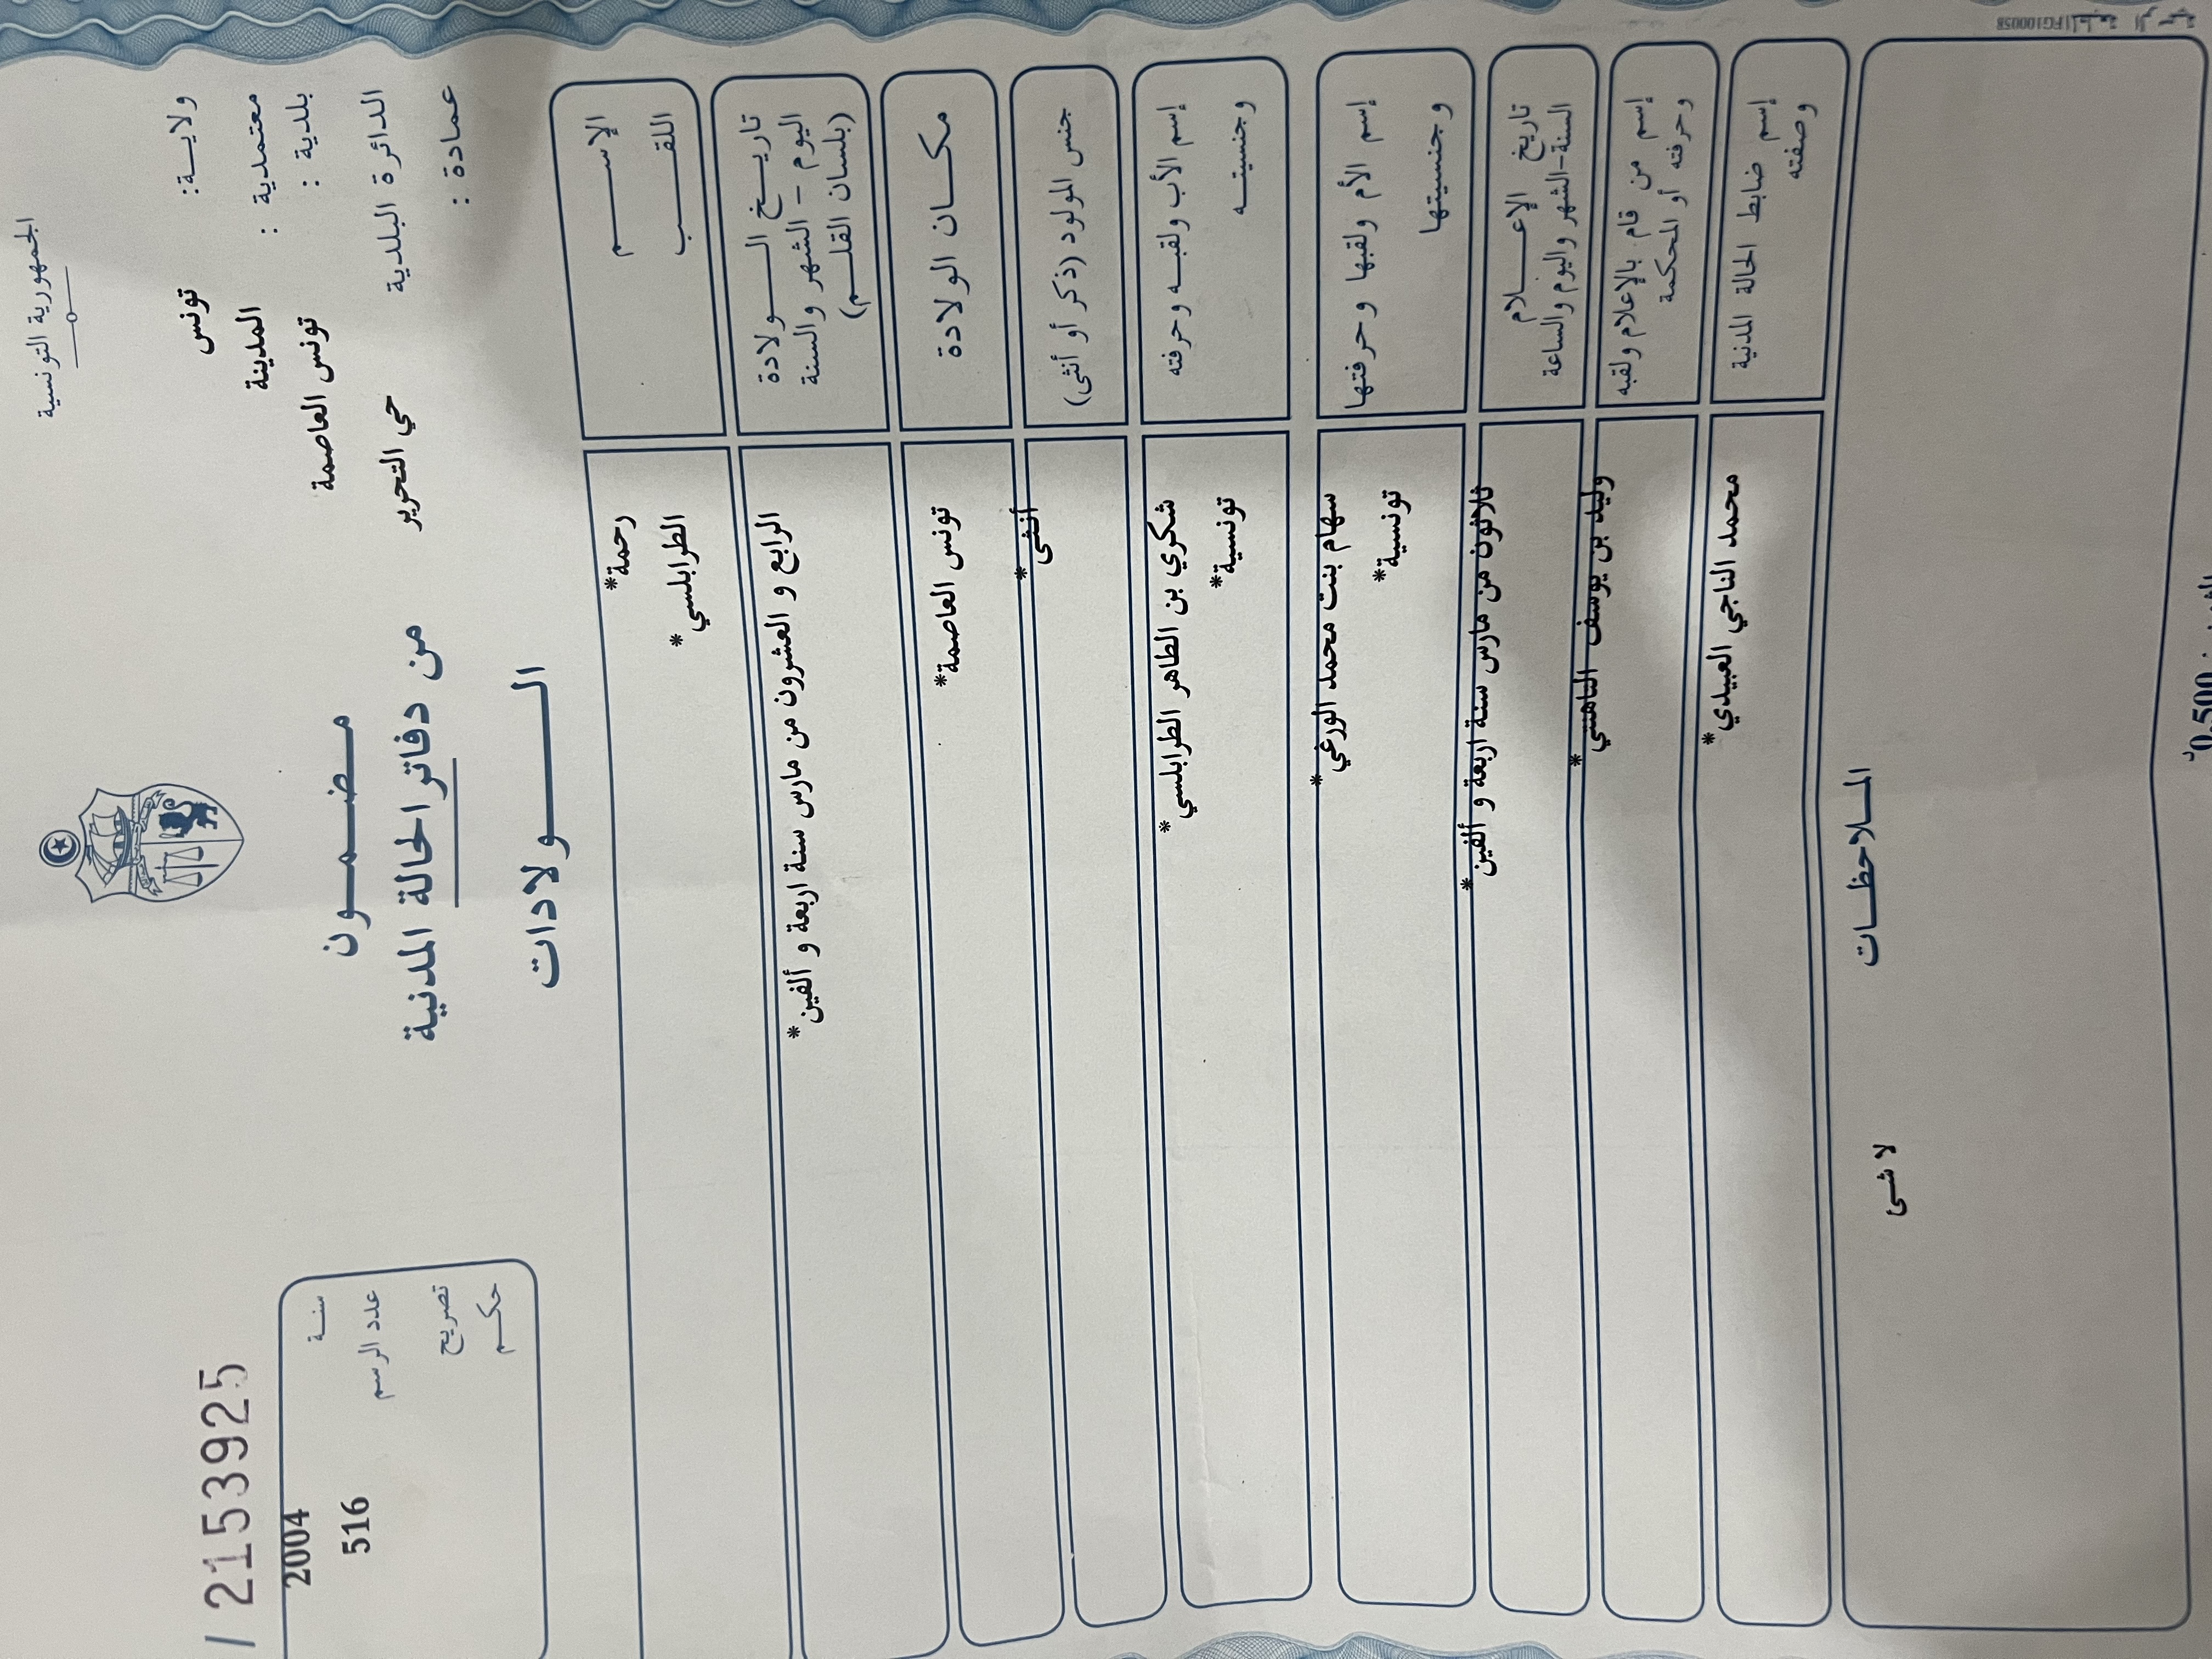 الجمهورية التونسية
ولايـــة: تونس
معتمدية : المدينة
بلدية : تونس العاصمة
الدائرة البلدية حي التحرير
عمادة :
مـضـمـــون
من دفاتر الحالة المدنية
الـــــولادات
/ 2153925
سنـــة 2004
عدد الرسم 516
تصريح
حكـــم
الإســـــم رحمة*
اللقـــــب الطرابلسي*
تاريـــخ الـــــولادة
اليوم – الشهر والسنة
(بلسان القلـــم)
الرابع و العشرون من مارس سنة اربعة و ألفين*
مكـــان الولادة تونس العاصمة*
جنس المولود (ذكر أو أنثى) أنثى*
إسم الأب ولقبـــه وحرفته شكري بن الطاهر الطرابلسي*
وجنسيتـــه تونسية*
إسم الأم ولقبها وحرفتها سهام بنت محمد الورغي*
وجنسيتها تونسية*
تاريخ الإعـــــلام
السنة-الشهر واليوم والساعة
ثلاثون من مارس سنة اربعة و ألفين*
إسم من قام بالإعلام ولقبه
وحرفته أو المحكمة
وليد بن يوسف
إسم ضابط الحالة المدنية
وصفته
محمد الناجي العبيدي*
المـــلاحظـــات
لا شى
0,500